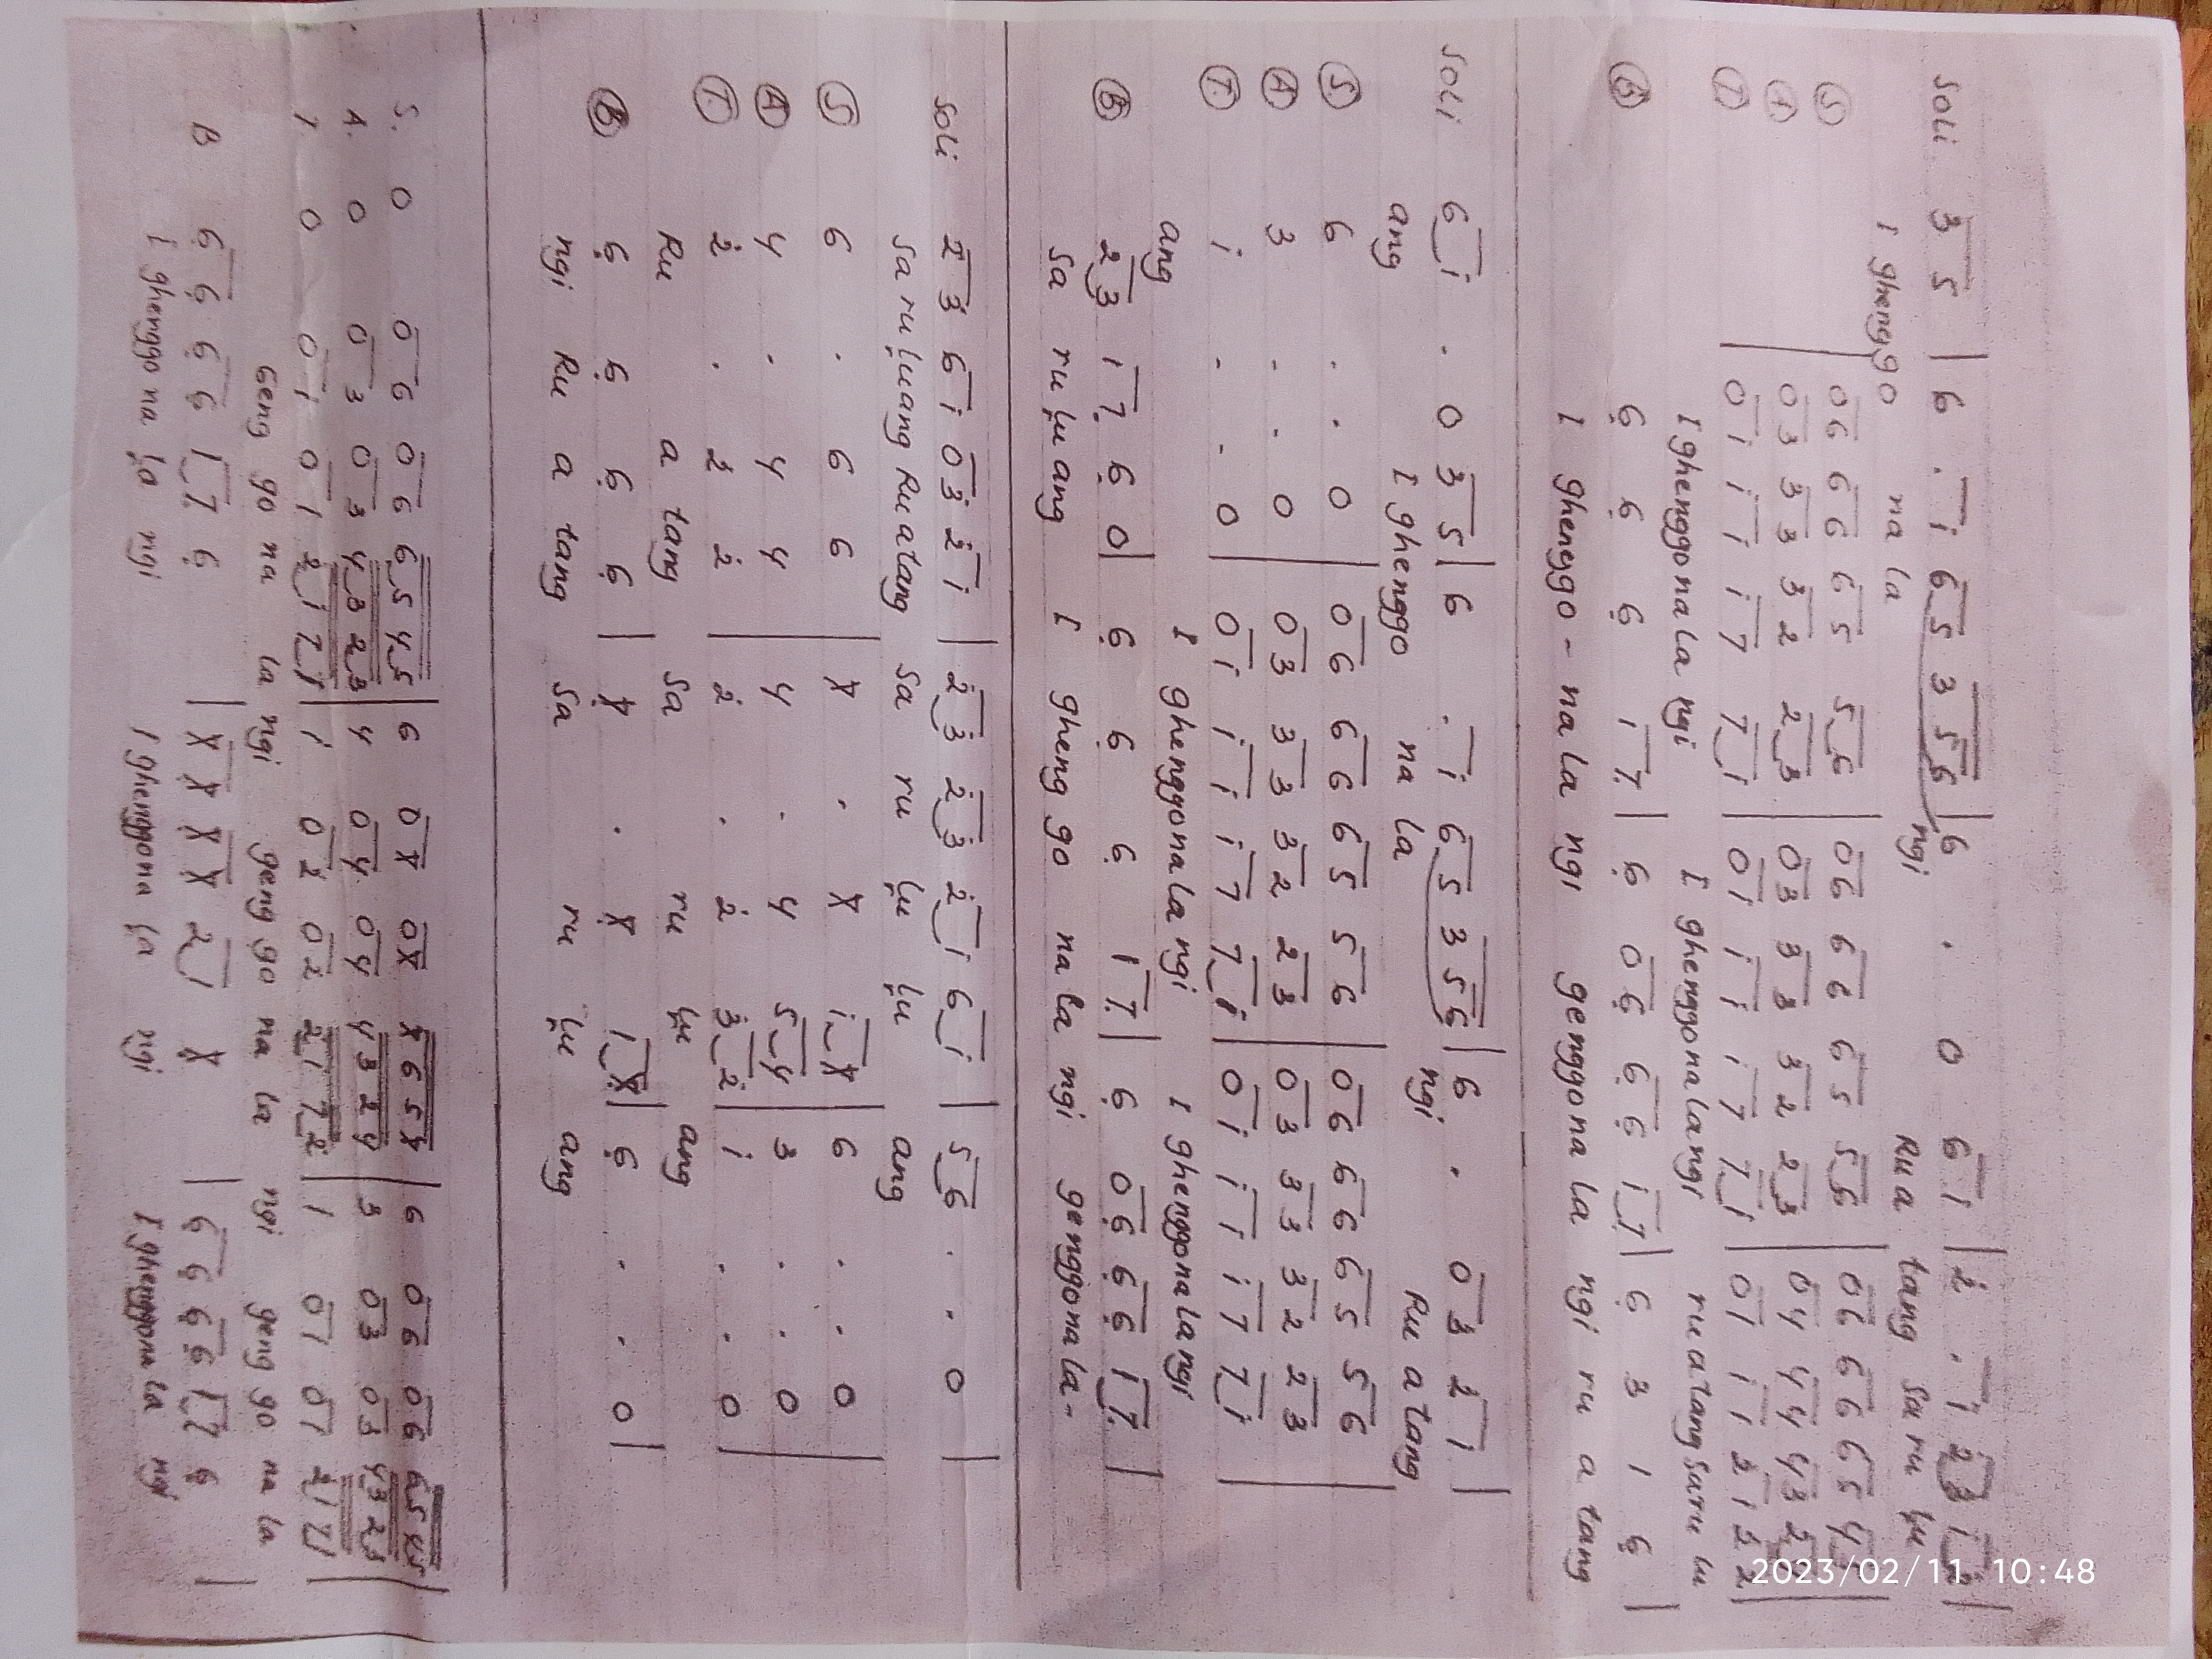 SOLI 3 5 | 6 . i 6 5 3 5 6 | 6 . 0 6 i | 2 . i 2 3 i 2 |
I ghenggo na la ngi Rua tang saru lu
S 0 6 6 6 6 5 5 6 | 0 6 6 6 6 5 5 6 | 0 6 6 6 6 5 4 5 |
A 0 3 3 3 3 2 2 3 | 0 3 3 3 3 2 2 3 | 0 4 4 4 4 3 2
T 0 i i i i 7 7 i | 0 i i i i 7 7 i | 0 i i i 2 i 2 2 |
I ghenggona la ngi I ghenggonalangi rua tang saru lu
B 6 6 6 1 7 | 6 0 6 6 6 1 7 | 6 3 1 6 |
I ghenggo - na la ngi genggona la ngi ru a tang
SOLI 6 i . 0 3 5 | 6 . i 6 5 3 5 6 | 6 . 0 3 2 i |
ang I ghenggo na la ngi Ru a tang
S 6 . . 0 | 0 6 6 6 6 5 5 6 | 0 6 6 6 6 5 5 6
A 3 . . 0 | 0 3 3 3 3 2 2 3 | 0 3 3 3 3 2 2 3
T. i . . 0 | 0 i i i i 7 7 i | 0 i i i i 7 7 i |
ang I ghenggonala ngi I ghenggonalangi
B 2 3 1 7 6 0 | 6 6 6 1 7 | 6 0 6 6 6 1 7 |
sa ru lu ang I gheng go na la ngi genggona la-
SOLI 2 3 6 i 0 3 2 i | 2 3 2 3 2 i 6 i | 5 6 . . 0 |
Sa ru luang Rua tang sa ru lu ang
S 6 . 6 6 | 4 . 4 i 4 | 6 . . 0
A 4 . 4 4 | 4 . 4 5 4 | 3 . . 0
T. 2 . 2 2 | 2 . 2 3 2 | i . . 0 |
Ru a tang sa ru lu ang
B 6 6 6 6 | 4 . 4 1 4 | 6 . . 0 |
ngi Ru a tang sa ru lu ang
S. 0 0 6 0 6 6 5 4 5 | 6 0 4 0 4 4 6 5 4 | 6 0 6 0 6 6 5 4 5
A. 0 0 3 0 3 4 3 2 3 | 4 0 4 0 4 4 3 2 4 | 3 0 3 0 3 4 3 2 3
T 0 0 i 0 1 2 i 7 i | i 0 2 0 2 2 i 7 2 | 1 0 1 0 1 2 1 7 1
geng go na la ngi geng go na la ngi geng go na la
B 6 6 6 6 1 7 6 | 4 4 4 4 2 1 4 | 6 6 6 6 1 7 6 |
I ghenggo na la ngi I ghenggona la ngi I ghenggona la ngi
2023/02/11 10:48